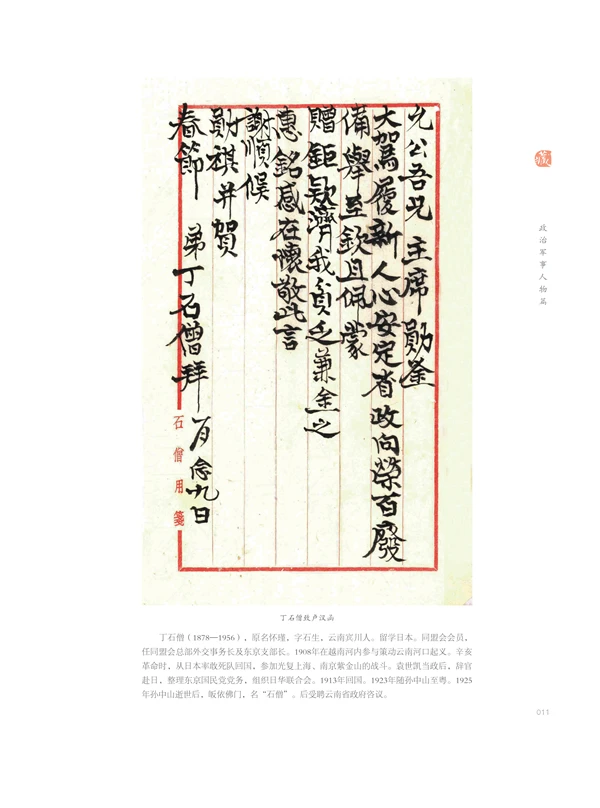 允公吾兄主席勛鉴
大駕履新人心安定省政向榮百廢
備舉至欽且佩蒙
贈鉅欵濟我貧乏兼金之
惠銘感在懷敬此言
謝順候
勛祺并賀
春節 弟丁石僧拜 一月念九日
石僧用箋
政治军事人物篇
丁石僧致卢汉函
丁石僧（1878—1956），原名怀瑾，字石生，云南宾川人。留学日本。同盟会会员，
任同盟会总部外交事务长及东京支部长。1908年在越南河内参与策动云南河口起义。辛亥
革命时，从日本率敢死队回国，参加光复上海、南京紫金山的战斗。袁世凯当政后，辞官
赴日，整理东京国民党党务，组织日华联合会。1913年回国。1923年随孙中山至粤。1925
年孙中山逝世后，皈依佛门，名“石僧”。后受聘云南省政府咨议。
011